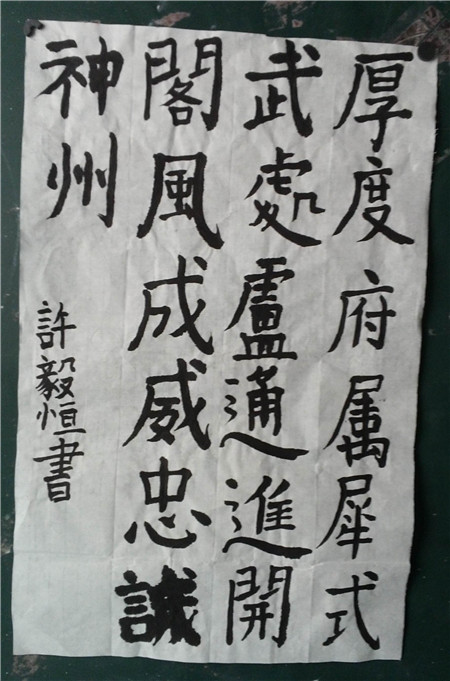 厚度府属犀式
武處盧通進開
閣風成威忠誠
神州
許毅恒書